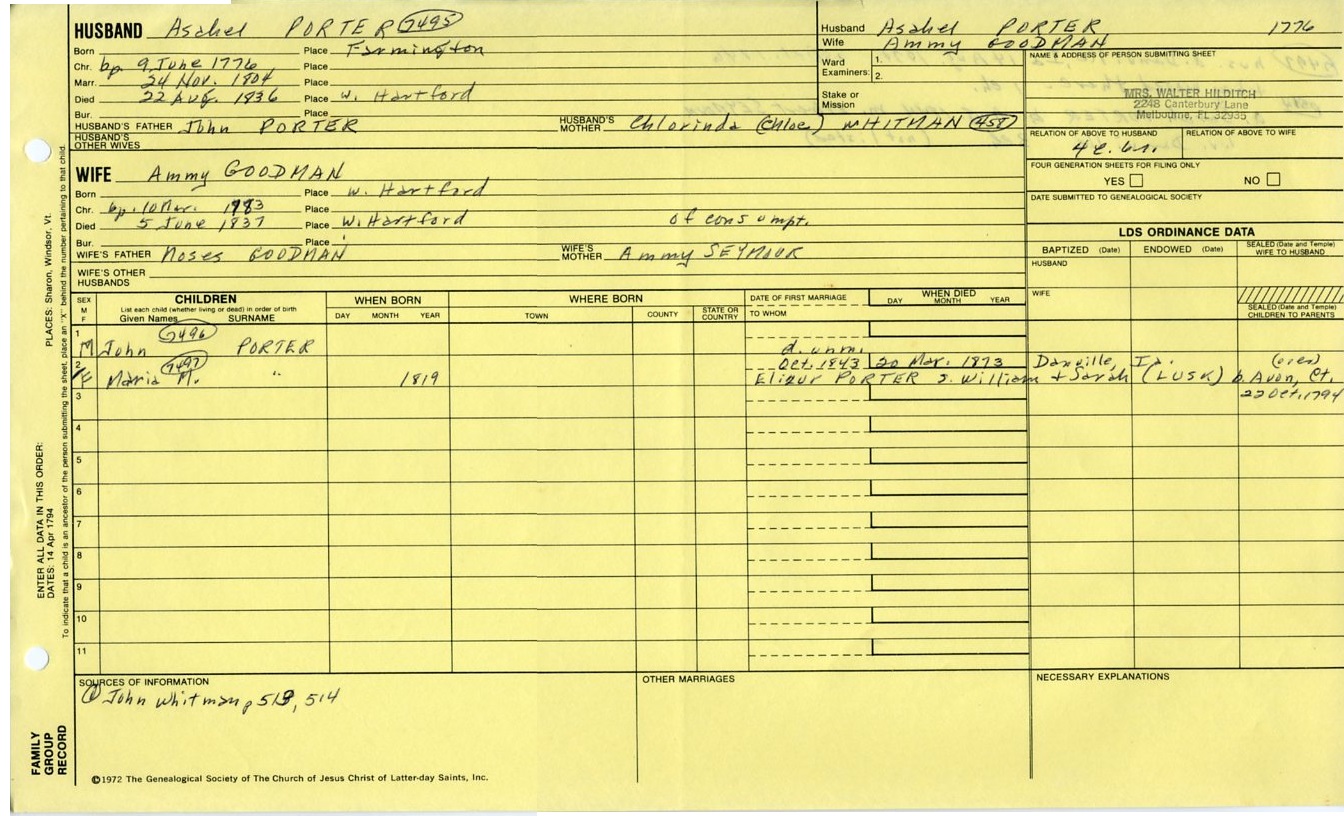 HUSBAND Asahel PORTER 7495
Born Place Farmington
Chr. bp. 9, June 1776 Place
Marr. 24 Nov. 1804 Place
Died 22 Aug. 1836 Place W. Hartford
Bur. Place
HUSBAND'S FATHER John PORTER HUSBAND'S MOTHER Chlorinda (Chloe) WHITMAN 458
HUSBAND'S OTHER WIVES
Husband Asahel PORTER 1776
Wife Ammy GOODMAN
Ward Examiners: 1.
2.
Stake or Mission
NAME & ADDRESS OF PERSON SUBMITTING SHEET
MRS. WALTER HILDITCH
2248 Canterbury Lane
Melbourne, FL 32935
RELATION OF ABOVE TO HUSBAND RELATION OF ABOVE TO WIFE
FOUR GENERATION SHEETS FOR FILING ONLY
YES NO
DATE SUBMITTED TO GENEALOGICAL SOCIETY
WIFE Ammy GOODMAN
Born Place W. Hartford
Chr. bp. 10 Mar. 1783 Place
Died 5 June 1837 Place W. Hartford of consumpt.
Bur. Place
WIFE'S FATHER Moses GOODMAN WIFE'S MOTHER Ammy SEYMOUR
WIFE'S OTHER HUSBANDS
LDS ORDINANCE DATA
BAPTIZED (Date) ENDOWED (Date) SEALED (Date and Temple) WIFE TO HUSBAND
HUSBAND
WIFE
SEALED (Date and Temple) CHILDREN TO PARENTS
SEX M F
CHILDREN
List each child (whether living or dead) in order of birth
Given Names SURNAME
WHEN BORN
DAY MONTH YEAR
WHERE BORN
TOWN COUNTY STATE OR COUNTRY
DATE OF FIRST MARRIAGE
TO WHOM
WHEN DIED
DAY MONTH YEAR
1 M John 7496 PORTER d. unm.
2 F Maria M. 7497 " 1819 Oct. 1843 20 Mar. 1873 Danville, Ia. (over)
Elizur PORTER s. William + Sarah (LUSK) b. Avon, Ct.
22 Oct. 1794
3
4
5
6
7
8
9
10
11
SOURCES OF INFORMATION
John Whitman p 513, 514
OTHER MARRIAGES
NECESSARY EXPLANATIONS
©1972 The Genealogical Society of The Church of Jesus Christ of Latter-day Saints, Inc.
FAMILY GROUP RECORD
ENTER ALL DATA IN THIS ORDER:
DATES: 14 Apr 1794
PLACES: Sharon, Windsor, Vt.
To indicate that a child is an ancestor of the person submitting the sheet, place an "X" behind the number pertaining to that child.